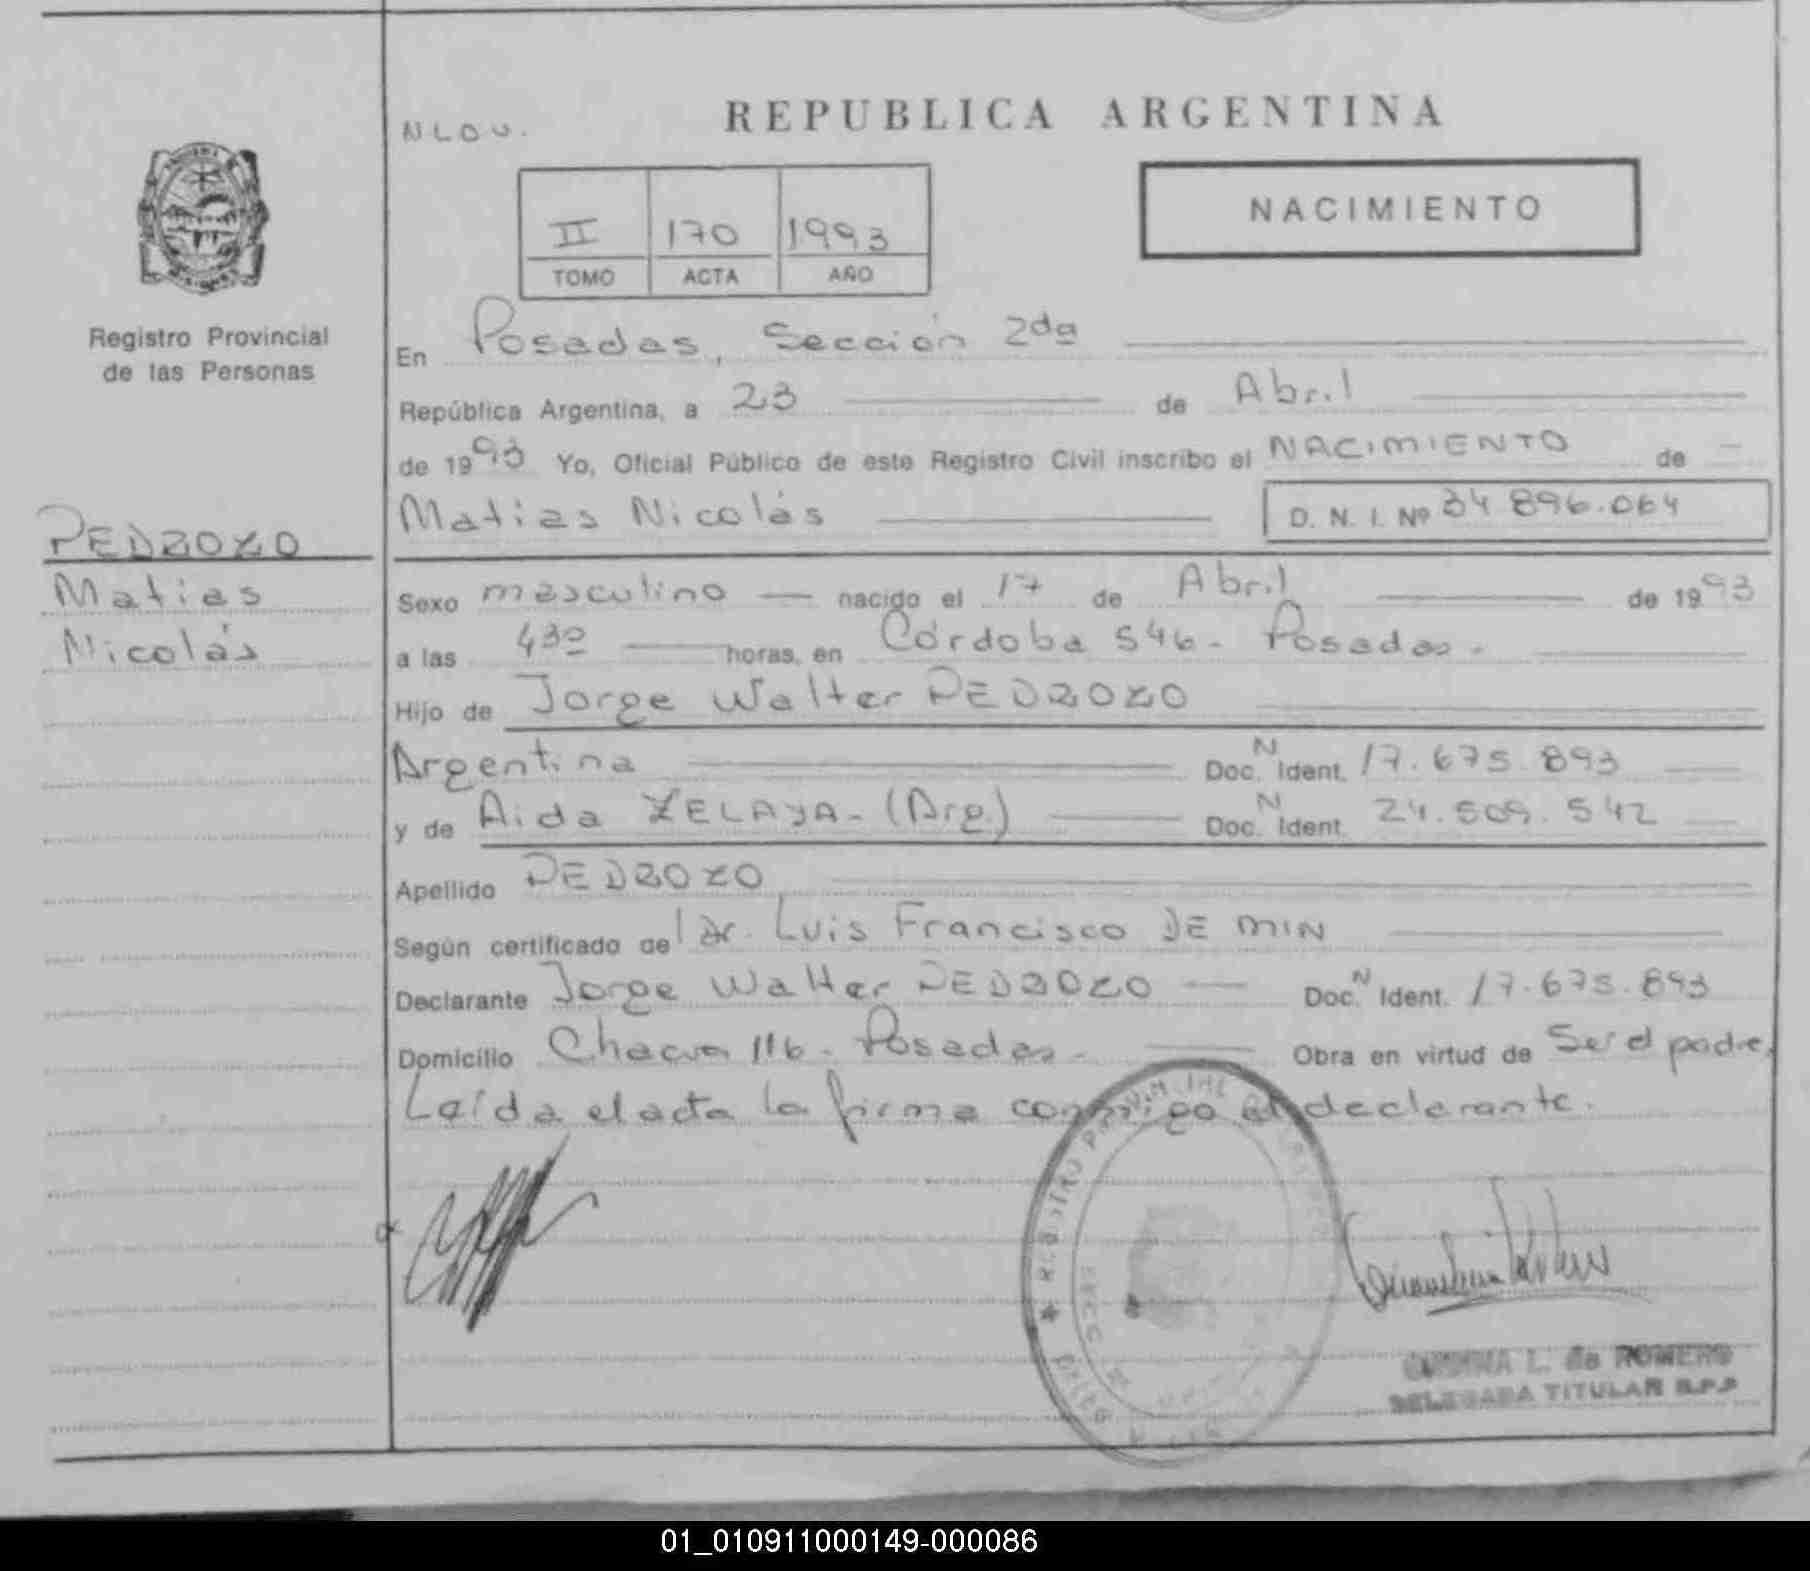 REPUBLICA ARGENTINA
NLOU.
NACIMIENTO
II 170 1993
TOMO ACTA AÑO
Registro Provincial
de las Personas
En Posadas, Sección 2da
República Argentina, a 23 de Abril
de 1993 Yo, Oficial Público de este Registro Civil inscribo el NACIMIENTO de
Matias Nicolás D. N. I. Nº 34 896.064
PEDROZO
Matias
Nicolás
Sexo masculino nacido el 17 de Abril de 1993
a las 430 horas, en Córdoba 546 - Posadas -
Hijo de Jorge Walter PEDROZO
Argentina Doc. N Ident. 17.675.893
y de Aida ZELAYA - (Arg.) Doc. N Ident. 24.509.542
Apellido PEDROZO
Según certificado de l Dr. Luis Francisco DE MIN
Declarante Jorge Walter PEDROZO Doc. N Ident. 17.675.893
Domicilio Chacra 116 - Posadas - Obra en virtud de Ser el padre,
Leída el acta la firma conmigo el declarante.
REGISTRO
L. de ROMERO
DELEGADA TITULAR R.P.P
01_010911000149-000086